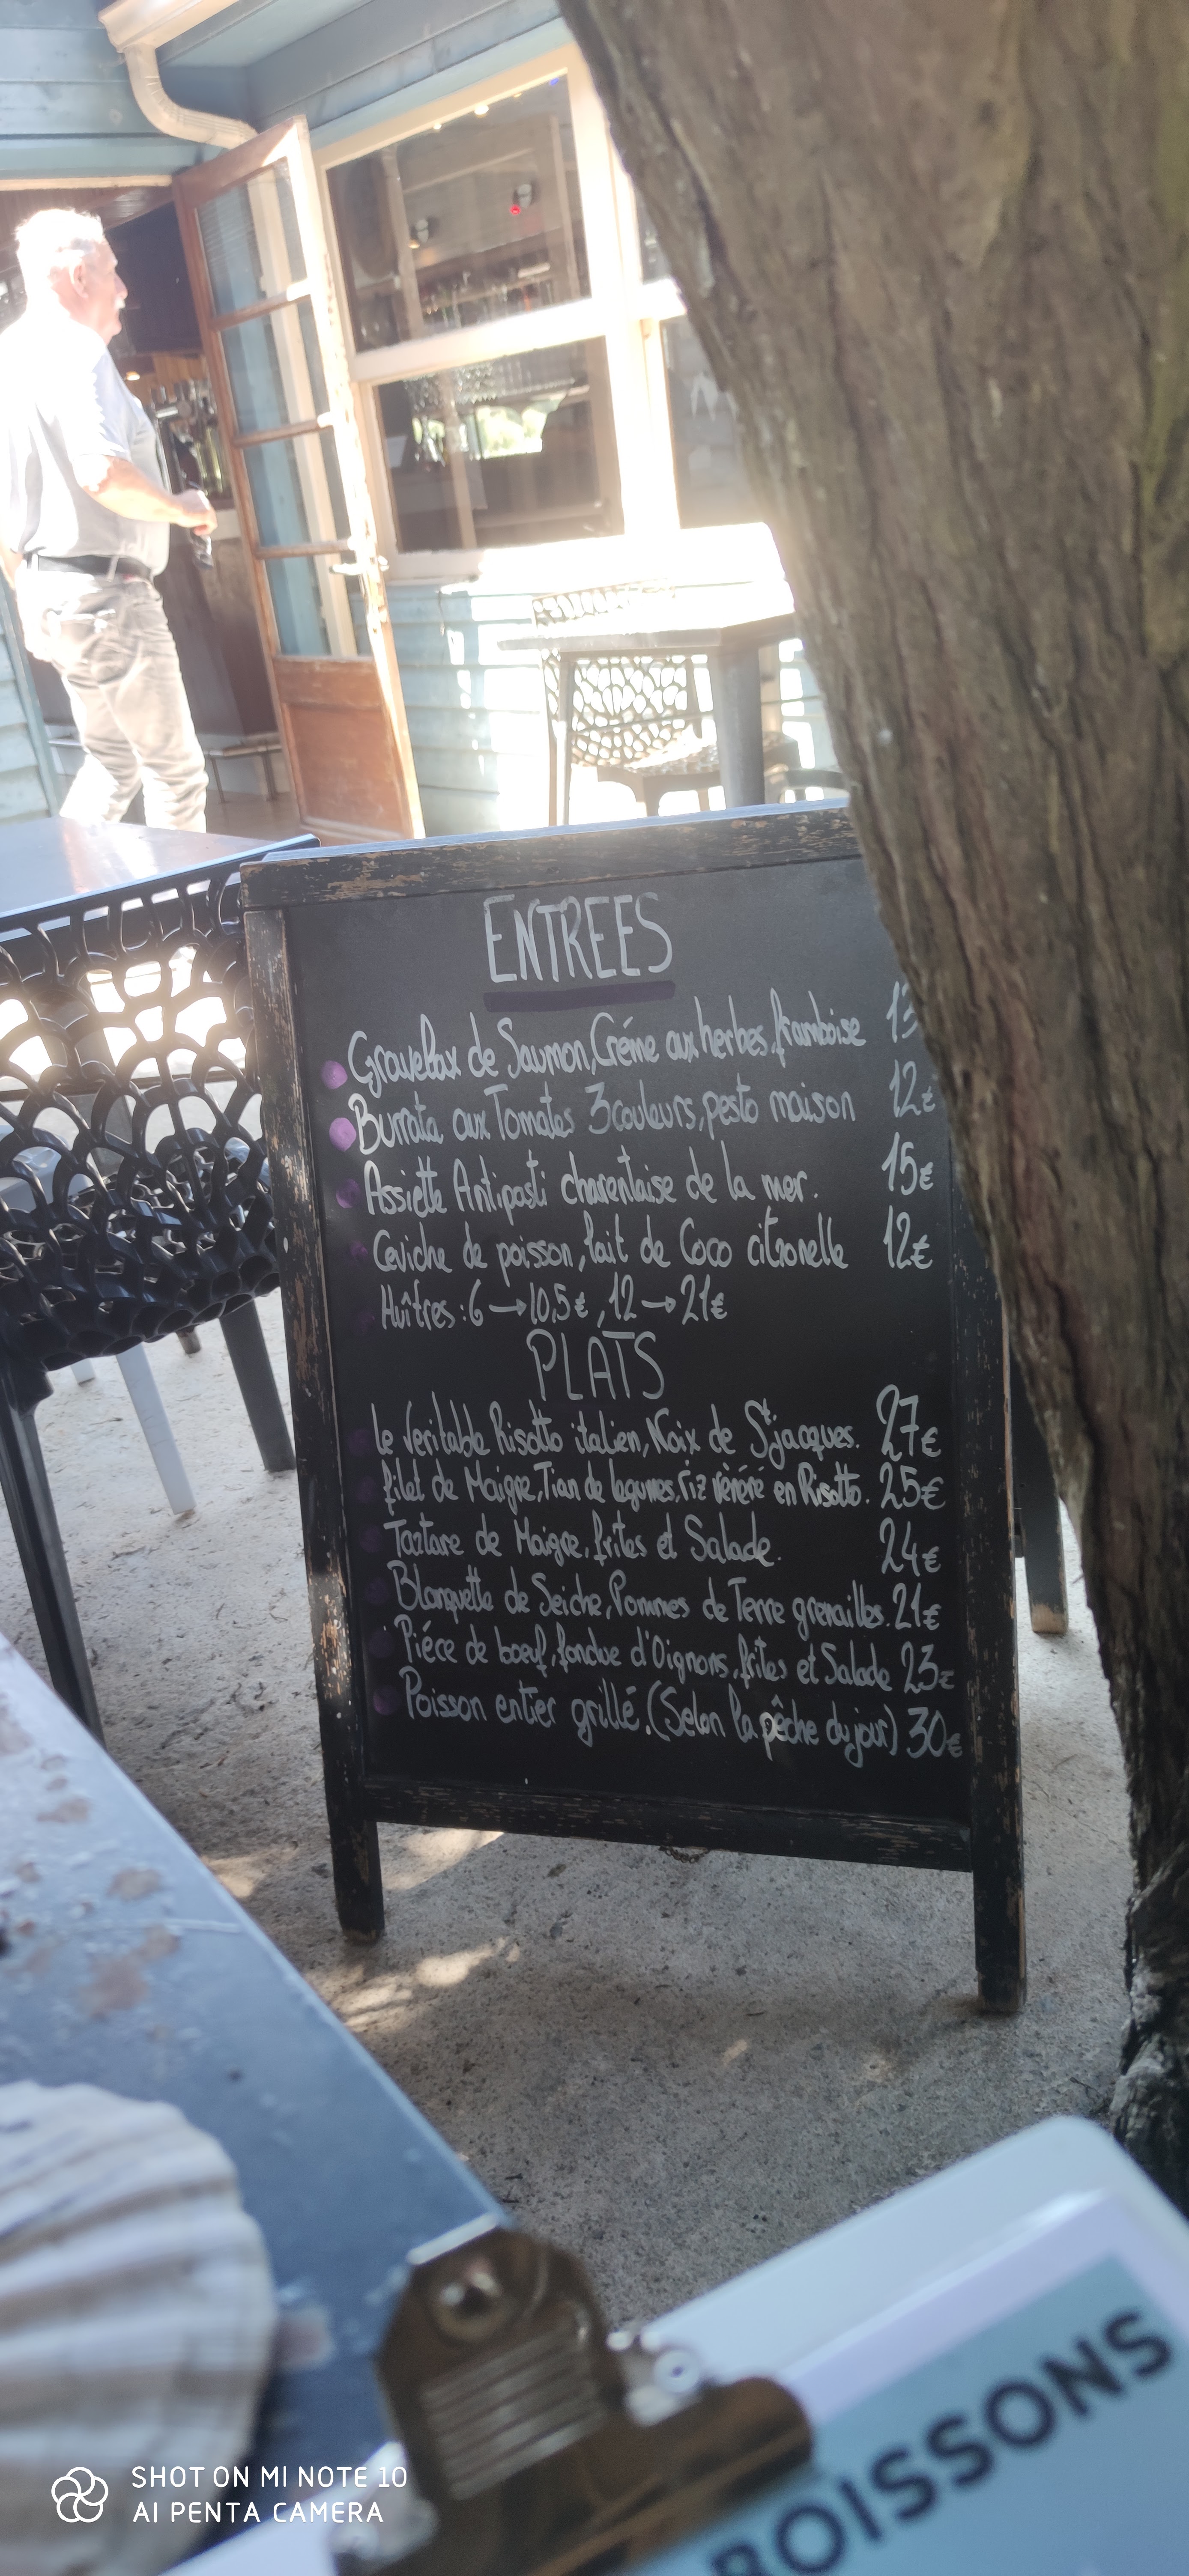 ENTREES
Gravelax de Saumon, Créme aux herbes, framboise 13
Burrata aux Tomates 3 couleurs, pesto maison 12€
Assiette Antipasti charentaise de la mer. 15€
Ceviche de poisson, lait de Coco citronelle 12€
Huîtres : 6 → 10,5€, 12 → 21€
PLATS
le Veritable Risotto italien, Noix de St jacques. 27€
filet de Maigre, Tian de legumes, riz vénéré en Risotto. 25€
Tartare de Maigre, frites et Salade. 24€
Blanquette de Seiche, Pommes de Terre grenailles. 21€
Piéce de boeuf, fondue d'Oignons, frites et Salade 23€
Poisson entier grillé. (Selon la pêche du jour) 30€
BOISSONS
SHOT ON MI NOTE 10
AI PENTA CAMERA